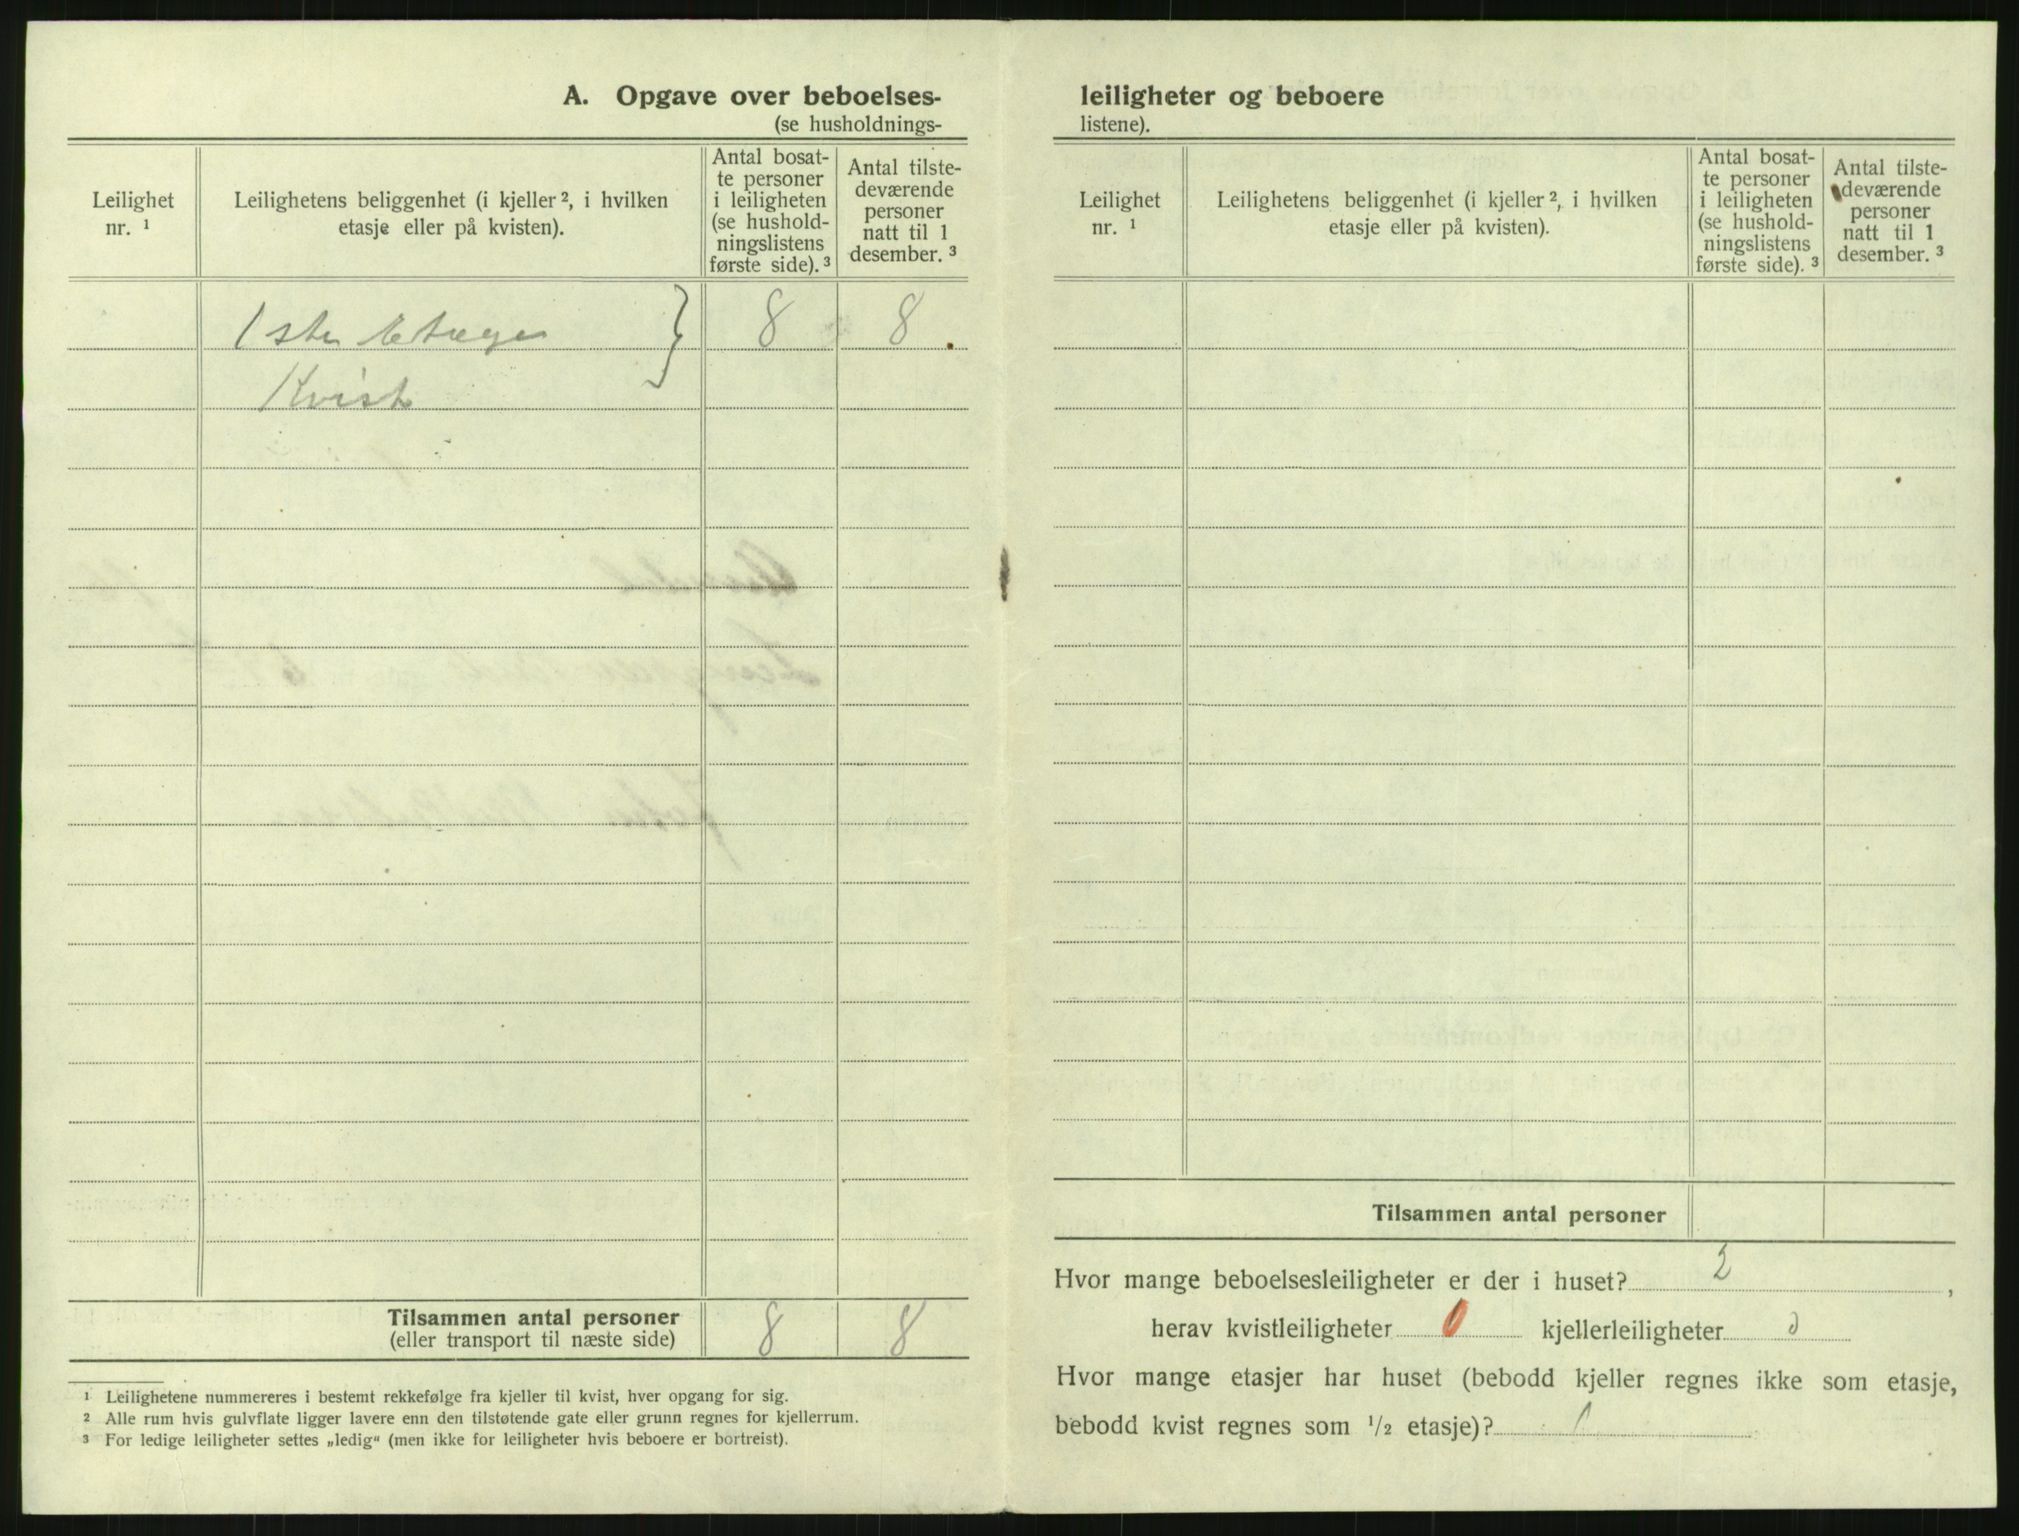 A. Opgave over beboelses-
(se husholdnings-
Leilighet nr. ¹
Leilighetens beliggenhet (i kjeller ², i hvilken
etasje eller på kvisten).
Antal bosat-
te personer
i leiligheten
(se hushold-
ningslistens
første side). ³
Antal tilste-
deværende
personer
natt til 1
desember. ³
1ste Etage } 8 8
Kvist
Tilsammen antal personer 8 8
(eller transport til næste side)
¹ Leilighetene nummereres i bestemt rekkefølge fra kjeller til kvist, hver opgang for sig.
² Alle rum hvis gulvflate ligger lavere enn den tilstøtende gate eller grunn regnes for kjellerrum.
³ For ledige leiligheter settes „ledig“ (men ikke for leiligheter hvis beboere er bortreist).
leiligheter og beboere
listene).
Leilighet
nr. ¹
Leilighetens beliggenhet (i kjeller ², i hvilken
etasje eller på kvisten).
Antal bosat-
te personer
i leiligheten
(se hushold-
ningslistens
første side). ³
Antal tilste-
deværende
personer
natt til 1
desember. ³
Tilsammen antal personer
Hvor mange beboelsesleiligheter er der i huset? 2,
herav kvistleiligheter 0 kjellerleiligheter 0
Hvor mange etasjer har huset (bebodd kjeller regnes ikke som etasje,
bebodd kvist regnes som ½ etasje)? 1